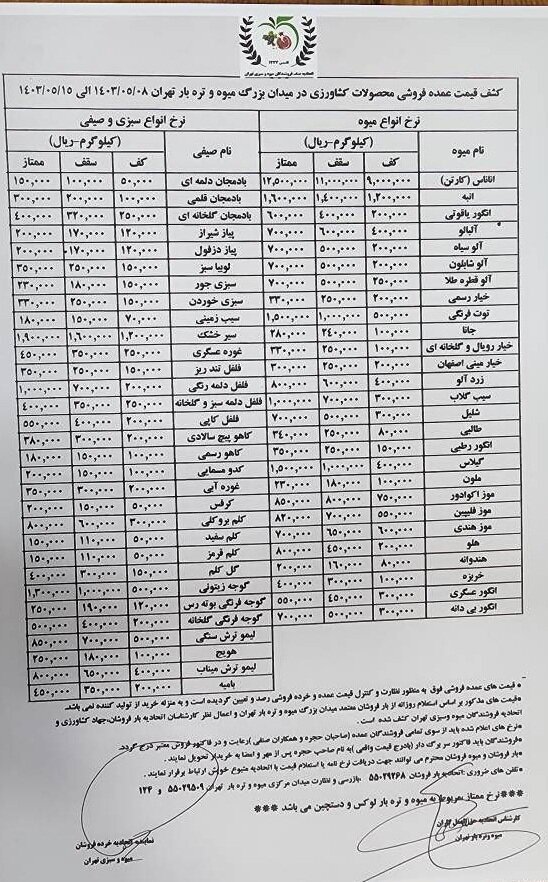 تاسیس ۱۳۳۳
اتحادیه صنف فروشندگان میوه و سبزی تهران
کشف قیمت عمده فروشی محصولات کشاورزی در میدان بزرگ میوه و تره بار تهران ۱۴۰۳/۰۵/۰۸ الی ۱۴۰۳/۰۵/۱۵
نرخ انواع میوه نرخ انواع سبزی و صیفی
نام میوه (کیلوگرم-ریال) نام صیفی (کیلوگرم-ریال)
کف سقف ممتاز کف سقف ممتاز
آناناس (کارتن) ۹,۰۰۰,۰۰۰ ۱۱,۰۰۰,۰۰۰ ۱۲,۵۰۰,۰۰۰ بادمجان دلمه ای ۵۰,۰۰۰ ۱۰۰,۰۰۰ ۱۵۰,۰۰۰
انبه ۱,۲۰۰,۰۰۰ ۱,۴۰۰,۰۰۰ ۱,۶۰۰,۰۰۰ بادمجان قلمی ۱۰۰,۰۰۰ ۲۰۰,۰۰۰ ۳۰۰,۰۰۰
انگور یاقوتی ۲۰۰,۰۰۰ ۴۰۰,۰۰۰ ۶۰۰,۰۰۰ بادمجان گلخانه ای ۲۵۰,۰۰۰ ۳۲۰,۰۰۰ ۴۰۰,۰۰۰
آلبالو ۴۰۰,۰۰۰ ۶۰۰,۰۰۰ ۷۰۰,۰۰۰ پیاز شیراز ۱۲۰,۰۰۰ ۱۷۰,۰۰۰ ۲۰۰,۰۰۰
آلو سیاه ۲۰۰,۰۰۰ ۵۰۰,۰۰۰ ۷۰۰,۰۰۰ پیاز دزفول ۱۲۰,۰۰۰ ۱۷۰,۰۰۰ ۲۰۰,۰۰۰
آلو شابلون ۲۰۰,۰۰۰ ۵۰۰,۰۰۰ ۷۰۰,۰۰۰ لوبیا سبز ۱۵۰,۰۰۰ ۲۵۰,۰۰۰ ۳۵۰,۰۰۰
آلو قطره طلا ۲۵۰,۰۰۰ ۵۰۰,۰۰۰ ۷۰۰,۰۰۰ سبزی جور ۱۵۰,۰۰۰ ۱۸۰,۰۰۰ ۲۳۰,۰۰۰
خیار رسمی ۲۰۰,۰۰۰ ۲۵۰,۰۰۰ ۳۳۰,۰۰۰ سبزی خوردن ۱۵۰,۰۰۰ ۲۵۰,۰۰۰ ۳۳۰,۰۰۰
توت فرنگی ۵۰۰,۰۰۰ ۱,۰۰۰,۰۰۰ ۱,۵۰۰,۰۰۰ سیب زمینی ۷۰,۰۰۰ ۱۵۰,۰۰۰ ۱۸۰,۰۰۰
جانا ۱۰۰,۰۰۰ ۲۴۰,۰۰۰ ۲۸۰,۰۰۰ سیر خشک ۱,۲۰۰,۰۰۰ ۱,۶۰۰,۰۰۰ ۱,۹۰۰,۰۰۰
خیار رویال و گلخانه ای ۱۰۰,۰۰۰ ۲۵۰,۰۰۰ ۳۳۰,۰۰۰ غوره عسگری ۲۵۰,۰۰۰ ۳۵۰,۰۰۰ ۴۵۰,۰۰۰
خیار مینی اصفهان ۲۰۰,۰۰۰ ۲۵۰,۰۰۰ ۳۰۰,۰۰۰ فلفل تند ریز ۱۵۰,۰۰۰ ۲۵۰,۰۰۰ ۳۵۰,۰۰۰
زرد آلو ۴۰۰,۰۰۰ ۶۰۰,۰۰۰ ۸۰۰,۰۰۰ فلفل دلمه رنگی ۲۰۰,۰۰۰ ۷۰۰,۰۰۰ ۱,۰۰۰,۰۰۰
سیب گلاب ۳۰۰,۰۰۰ ۷۰۰,۰۰۰ ۱,۰۰۰,۰۰۰ فلفل دلمه سبز و گلخانه ۲۵۰,۰۰۰ ۳۵۰,۰۰۰ ۴۰۰,۰۰۰
شلیل ۳۰۰,۰۰۰ ۵۰۰,۰۰۰ ۷۰۰,۰۰۰ فلفل کاپی ۲۰۰,۰۰۰ ۴۰۰,۰۰۰ ۵۵۰,۰۰۰
طالبی ۸۰,۰۰۰ ۲۵۰,۰۰۰ ۳۴۰,۰۰۰ کاهو پیچ سالادی ۲۰۰,۰۰۰ ۳۰۰,۰۰۰ ۳۸۰,۰۰۰
انگور رطبی ۱۵۰,۰۰۰ ۲۵۰,۰۰۰ ۳۵۰,۰۰۰ کاهو رسمی ۱۰۰,۰۰۰ ۱۵۰,۰۰۰ ۱۸۰,۰۰۰
گیلاس ۴۰۰,۰۰۰ ۱,۰۰۰,۰۰۰ ۱,۵۰۰,۰۰۰ کدو مسمایی ۱۰۰,۰۰۰ ۱۵۰,۰۰۰ ۲۰۰,۰۰۰
ملون ۱۰۰,۰۰۰ ۱۸۰,۰۰۰ ۲۳۰,۰۰۰ غوره آبی ۲۰۰,۰۰۰ ۳۰۰,۰۰۰ ۳۵۰,۰۰۰
موز اکوادور ۷۵۰,۰۰۰ ۸۰۰,۰۰۰ ۸۵۰,۰۰۰ کرفس ۵۰,۰۰۰ ۱۵۰,۰۰۰ ۲۰۰,۰۰۰
موز فلیپین ۵۵۰,۰۰۰ ۷۰۰,۰۰۰ ۸۲۰,۰۰۰ کلم بروکلی ۳۰۰,۰۰۰ ۶۰۰,۰۰۰ ۸۰۰,۰۰۰
موز هندی ۶۰۰,۰۰۰ ۶۵۰,۰۰۰ ۷۰۰,۰۰۰ کلم سفید ۵۰,۰۰۰ ۱۱۰,۰۰۰ ۱۵۰,۰۰۰
هلو ۲۰۰,۰۰۰ ۴۵۰,۰۰۰ ۸۰۰,۰۰۰ کلم قرمز ۵۰,۰۰۰ ۱۱۰,۰۰۰ ۱۵۰,۰۰۰
هندوانه ۸۰,۰۰۰ ۱۶۰,۰۰۰ ۲۰۰,۰۰۰ گل کلم ۱۵۰,۰۰۰ ۳۰۰,۰۰۰ ۴۰۰,۰۰۰
خربزه ۱۰۰,۰۰۰ ۳۰۰,۰۰۰ ۴۰۰,۰۰۰ گوجه زیتونی ۵۰۰,۰۰۰ ۱,۰۰۰,۰۰۰ ۱,۳۰۰,۰۰۰
انگور عسگری ۳۰۰,۰۰۰ ۴۵۰,۰۰۰ ۵۵۰,۰۰۰ گوجه فرنگی بوته رس ۱۲۰,۰۰۰ ۱۹۰,۰۰۰ ۲۵۰,۰۰۰
انگور بی دانه ۳۰۰,۰۰۰ ۵۰۰,۰۰۰ ۷۰۰,۰۰۰ گوجه فرنگی گلخانه ۲۰۰,۰۰۰ ۴۰۰,۰۰۰ ۵۰۰,۰۰۰
لیمو ترش سنگی ۵۰۰,۰۰۰ ۷۰۰,۰۰۰ ۸۵۰,۰۰۰
هویج ۱۰۰,۰۰۰ ۱۸۰,۰۰۰ ۲۵۰,۰۰۰
لیمو ترش میناب ۴۰۰,۰۰۰ ۶۵۰,۰۰۰ ۸۰۰,۰۰۰
بامیه ۲۰۰,۰۰۰ ۳۵۰,۰۰۰ ۴۵۰,۰۰۰
* قیمت های عمده فروشی فوق به منظور نظارت و کنترل قیمت عمده و خرده فروشی رصد و تعیین گردیده است و به منزله خرید از تولید کننده نمی باشد.
* قیمت های مذکور بر اساس استعلام روزانه از بار فروشان معتمد میدان بزرگ میوه و تره بار تهران و اعمال نظر کارشناسان اتحادیه بار فروشان،جهاد کشاورزی و
اتحادیه فروشندگان میوه وسبزی تهران کشف شده است .
* نرخ های اعلام شده باید از سوی تمامی فروشندگان عمده (صاحبان حجره و همکاران صنفی )رعایت و در فاکتور فروش معتبر درج گردد.
* بارفروشان باید فاکتور سربرگ دار (بادرج قیمت واقعی )به نام صاحب حجره پس از مهر و امضا به خریدار تحویل نمایند .
* بار فروشان و میوه فروشان محترم می توانند جهت دریافت نرخ نامه یا استعلام قیمت با اتحادیه متبوع خویش ارتباط برقرار نمایند .
* تلفن های ضروری :اتحادیه بار فروشان ۵۵۰۲۹۲۶۸ .بازرسی و نظارت میدان مرکزی میوه و تره بار تهران ۵۵۰۲۹۵۰۹ و ۱۲۴
***نرخ ممتاز مربوط به میوه و تره بار لوکس و دستچین می باشد ***
کارشناس اتحادیه
میوه وتره بار تهران
نماینده اتحادیه خرده فروشان
میوه و سبزی تهران